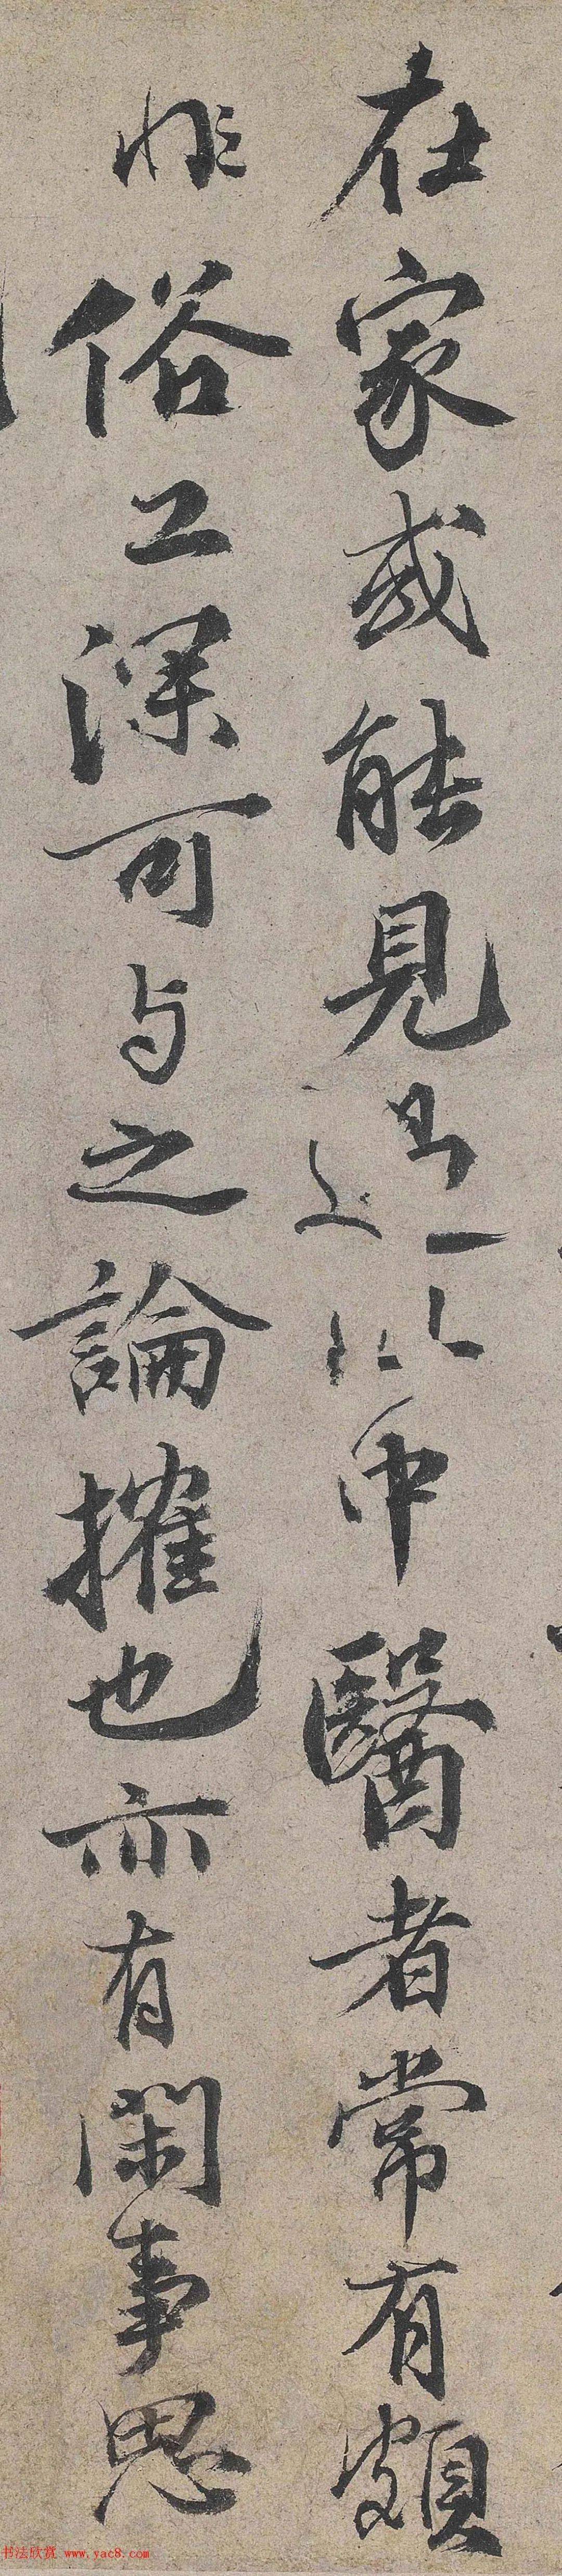 在家或能見過此中醫者常有頗
非俗工深可与之論搉也亦有閑事思
书法欣赏 www.yac8.com